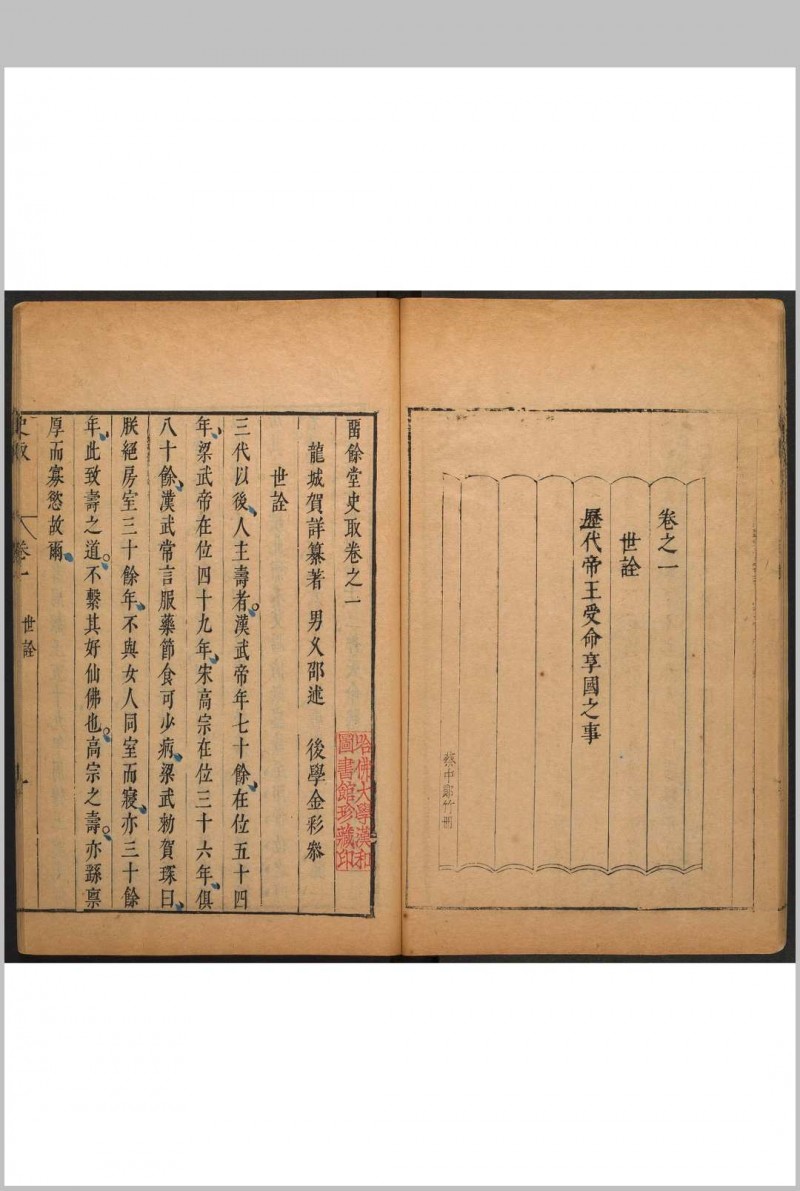 卷之一
世詮
歷代帝王受命享國之事
蔡中郎竹冊
畱餘堂史取卷之一
龍城賀詳纂著　男义邵述　後學金彩叅
世詮
三代以後、人主壽者。漢武帝年七十餘、在位五十四
年、梁武帝在位四十九年、宋高宗在位三十六年、俱
八十餘、漢武常言服藥節食可少病、梁武勑賀琛曰、
朕絕房室三十餘年、不與女人同室而寢、亦三十餘
年、此致壽之道。不繫其好仙佛也。高宗之壽。亦繇禀
厚而寡慾故爾、
史取
卷一
世詮
一
哈佛大學漢和
圖書館珍藏印